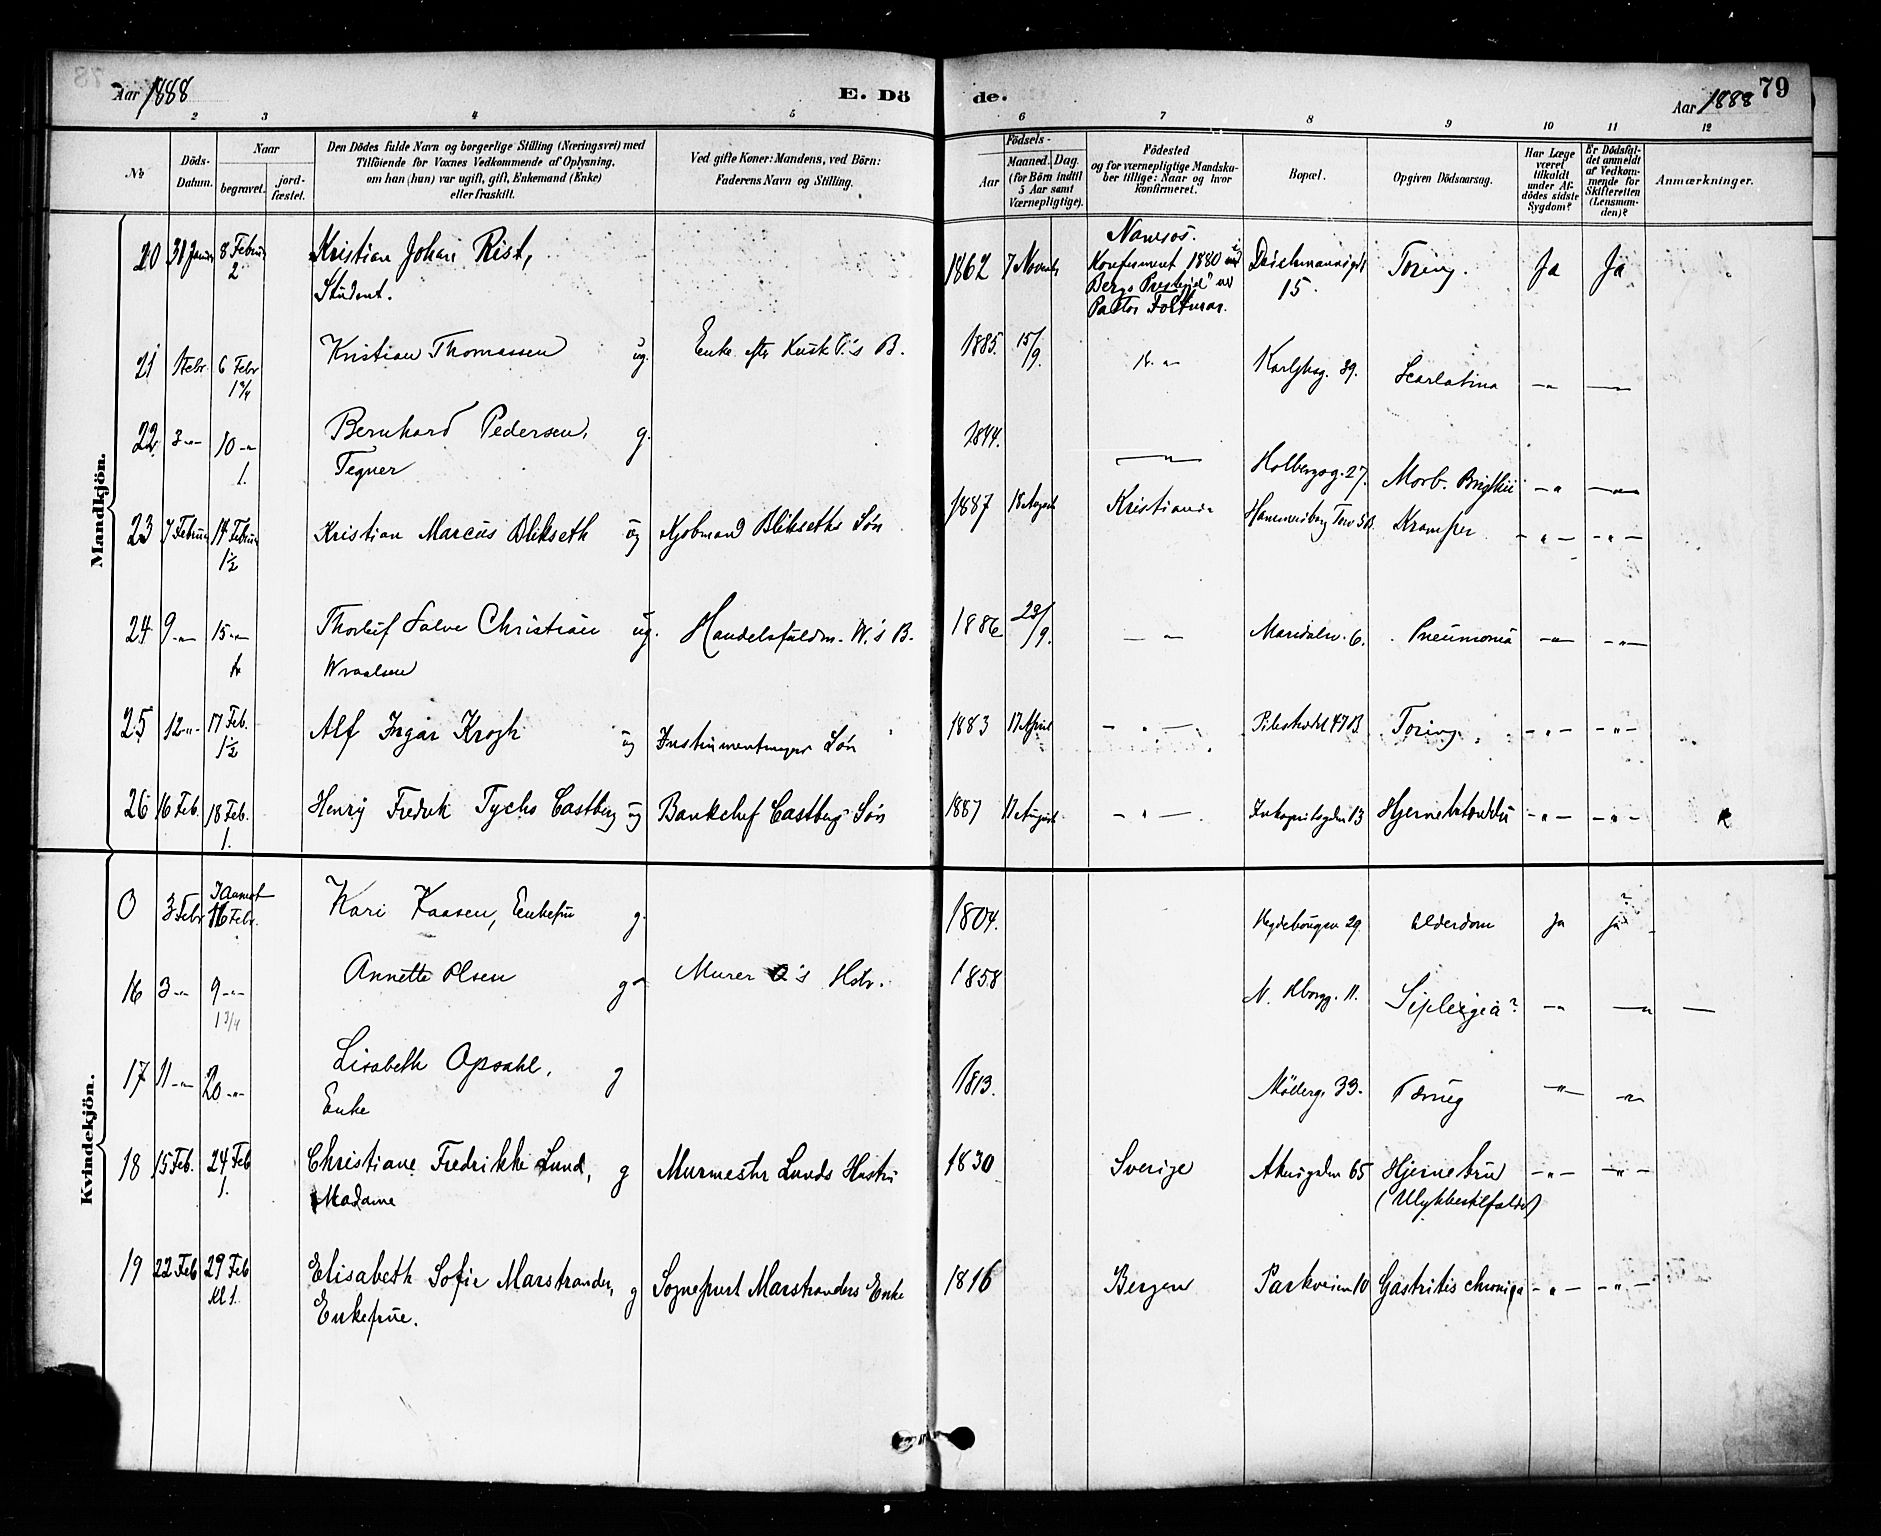 Aar 1888
E. Dö
de.
Aar 1888
79
2 3 4 5 6 7 8 9 10 11 12
No
Döds-Datum.
Naar
begravet.
jord-fæstet.
Den Dödes fulde Navn og borgerlige Stilling (Næringsvei) med
Tilföiende for Voxnes Vedkommende af Oplysning,
om han (hun) var ugift, gift, Enkemand (Enke)
eller fraskilt.
Ved gifte Koner: Mandens, ved Börn:
Faderens Navn og Stilling.
Födsels-
Aar
Maaned. Dag.
(for Börn indtil
5 Aar samt
Værnepligtige).
Födested
og for værnepligtige Mandska-
ber tillige: Naar og hvor
konfirmeret.
Bopæl.
Opgiven Dödsaarsag.
Har Læge
været
tilkaldt
under Af-
dödes sidste
Sygdom?
Er Dödsfal-
det anmeldt
af Vedkom-
mende for
Skifteretten
(Lensman-
den)?
Anmærkninger.
Mandkjön.
20 31 Januar 8 Februar 2 Kristian Johan Rist, Student. 1862 7 Novemb Namsos. Konfirmeret 1880 Bergs Pastor 15. Tæring. Ja Ja
21 1 Febr 6 Febr Kristian Thomassen ug. Enke efter Kusk T.'s B. 1885. 15/9. — Karljhsg. 39. Scarlatina —"— —
22 3 —"— 10 —"— 1. Bernhard Pedersen, Tegner g. 1844. —"— Holbergsg. 27. Morb. Brightii —"— —"—
23 7 Februar 14 Februar 1½ Kristian Marcus Blikseth ug Kjøbmand Blikseths Søn 1887 18 August Kristiania Hammersborg Torv 5B. Kramper —"— —"—
24 9 —"— 15 —"— Salve Christian Wraalsen ug. W.'s B. 1886 —"— Maridalsv. 6. Pneumonia —"— —"—
25 12 —"— 17 Feb. 1½ Alf Ingar Krogh ug Instrumentmager Søn 1883 17 April —"— Pilestrædet 47B. Tæring —"— —"—
26 16 Feb. 18 Feb. 1. Henry Fredrik Tycho Castberg ug Bankchef Castbergs Søn 1887 17 August —"— 13 —"— —"—
Kvindekjön.
0 3 Febr 16 Febr. Kari Kaasen, Enkefru g. 1804. 29. Alderdom Ja Ja
16 3 —"— 9 —"— 1 3/4 Annette Olsen g Murer O's Hstr. 1858 11. —"— —"— —
17 11 —"— 20 —"— Lisabeth Opsahl, Enke g 1813. Möllerg. 33. Tæring —"— —"—
18 15 Feb. 24 Feb 1. Christiane Fredrikke Lund, Madame g Murmester Lunds Hustru 1830 Sverige Akersgaden 65 (Ulykkestilfælde) —"— —"—
19 22 Feb 29 Feb Kl 1. Elisabeth Sofie Marstrander, Enkefrue. g Sogneprest Marstranders Enke 1816 Bergen Parkveien 10 Gastritis chronica —"— —"—